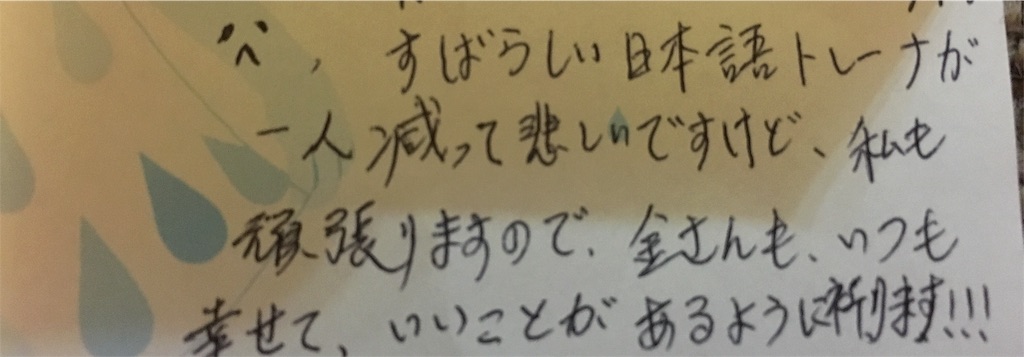 すばらしい日本語トレーナが
一人減って悲しいですけど、私も
頑張りますので、金さんも、いつも
幸せて、いいことがあるように祈ります!!!